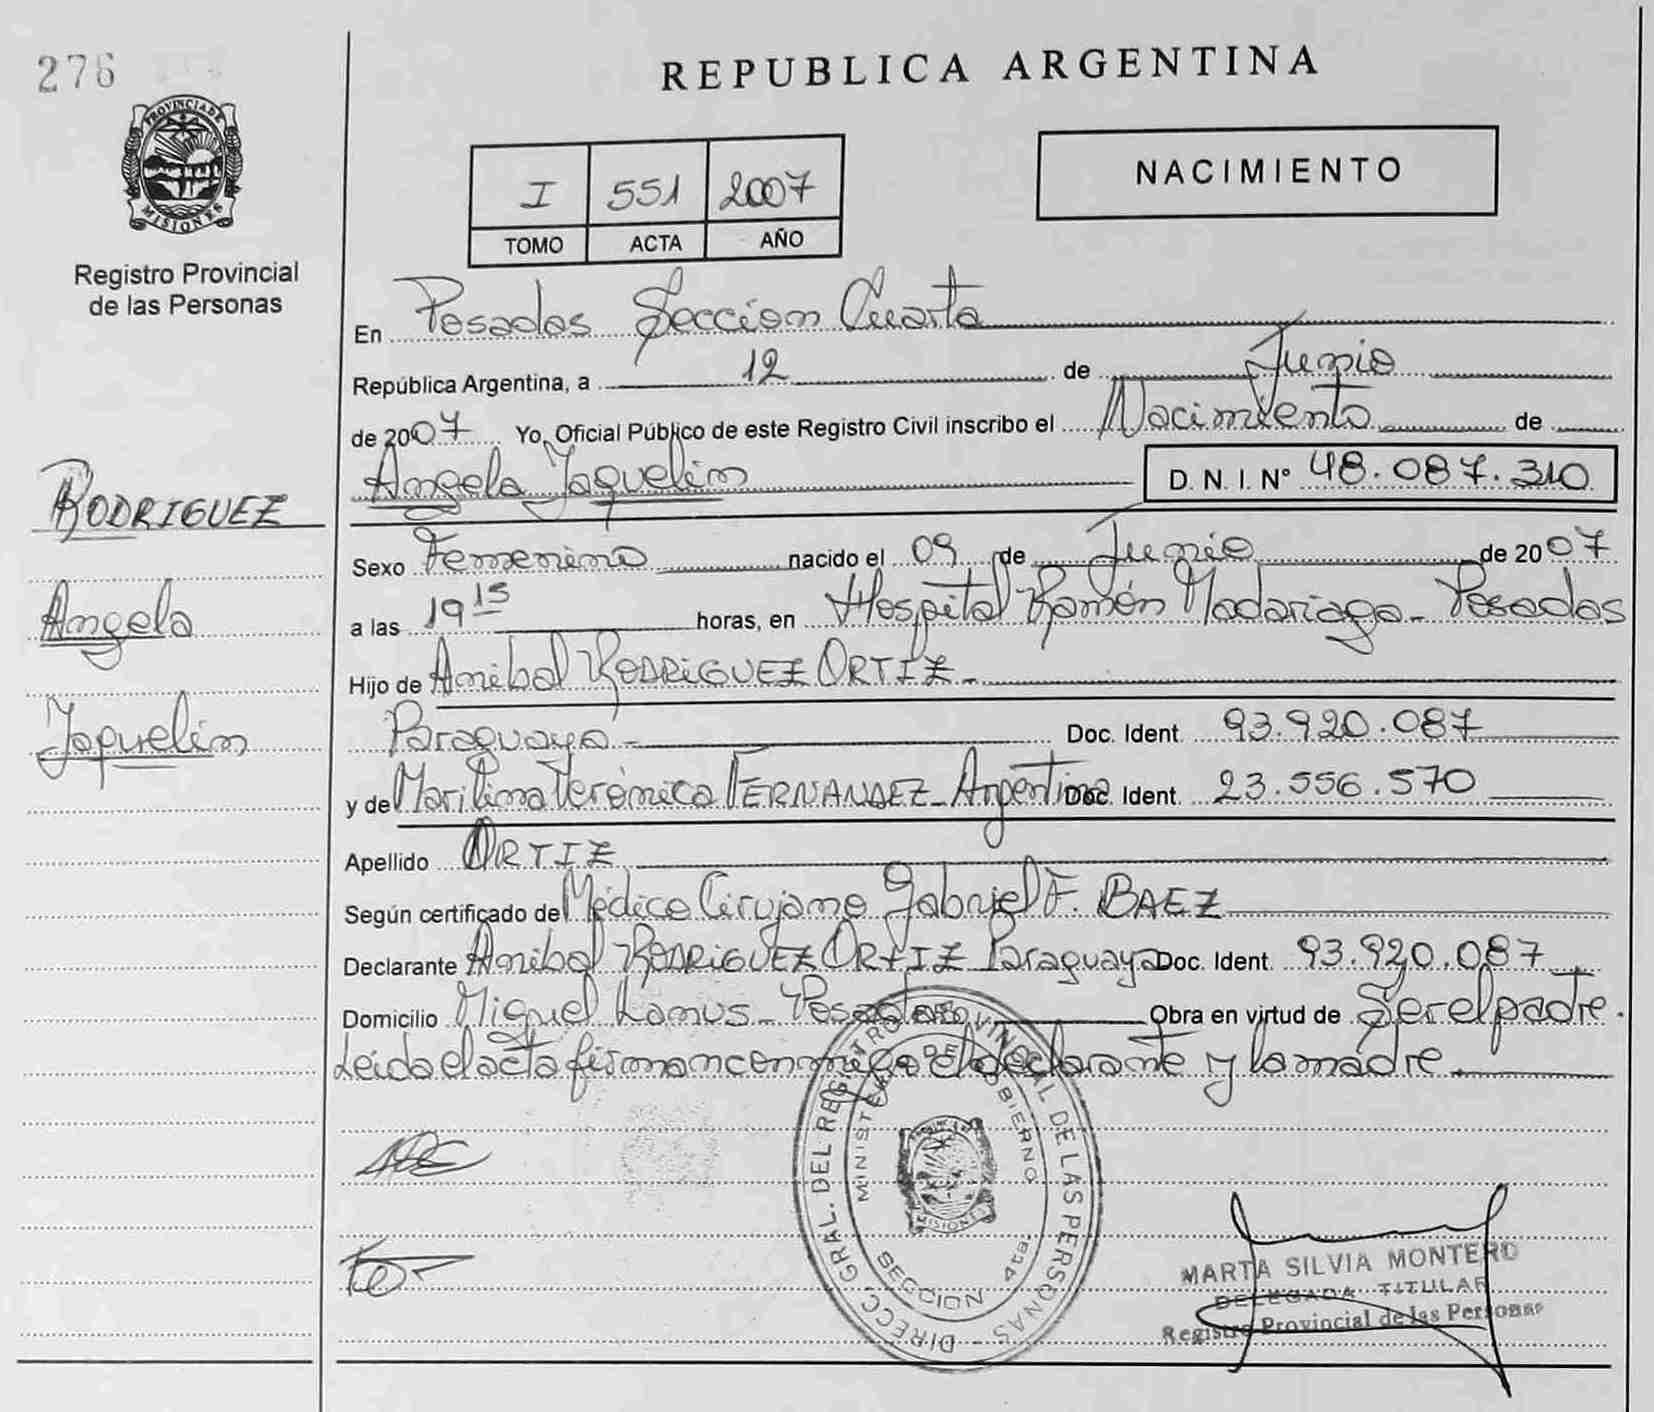 276
PROVINCIA DE
MISIONES
Registro Provincial
de las Personas
RODRIGUEZ
Angela
Jaquelin
REPUBLICA ARGENTINA
I 551 2007
TOMO ACTA AÑO
NACIMIENTO
En Posadas Seccion Cuarta
República Argentina, a 12 de Junio
de 2007 Yo, Oficial Público de este Registro Civil inscribo el Nacimiento de
Angela Jaquelin D. N. I. N° 48.087.310
Sexo Femenino nacido el 09 de Junio de 2007
a las 19 15 horas, en Hospital Ramón Madariaga - Posadas
Hijo de Anibal RODRIGUEZ ORTIZ -
Paraguaya - Doc. Ident. 93.920.087
y de Marilina Verónica FERNANDEZ - Argentina Doc. Ident. 23.556.570
Apellido ORTIZ
Según certificado de Médico Cirujano Gabriel F. BAEZ
Declarante Anibal RODRIGUEZ ORTIZ Paraguaya Doc. Ident. 93.920.087
Domicilio Miguel Lanus - Posadas Obra en virtud de Ser el padre.
Leida el acta firman conmigo el declarante y la madre.
DIRECC. GRAL. DEL REGISTRO PROVINCIAL DE LAS PERSONAS -
MINISTERIO DE GOBIERNO
MISIONES
SECCION 4ta.
MARTA SILVIA MONTERO
DELEGADA TITULAR
Registro Provincial de las Personas